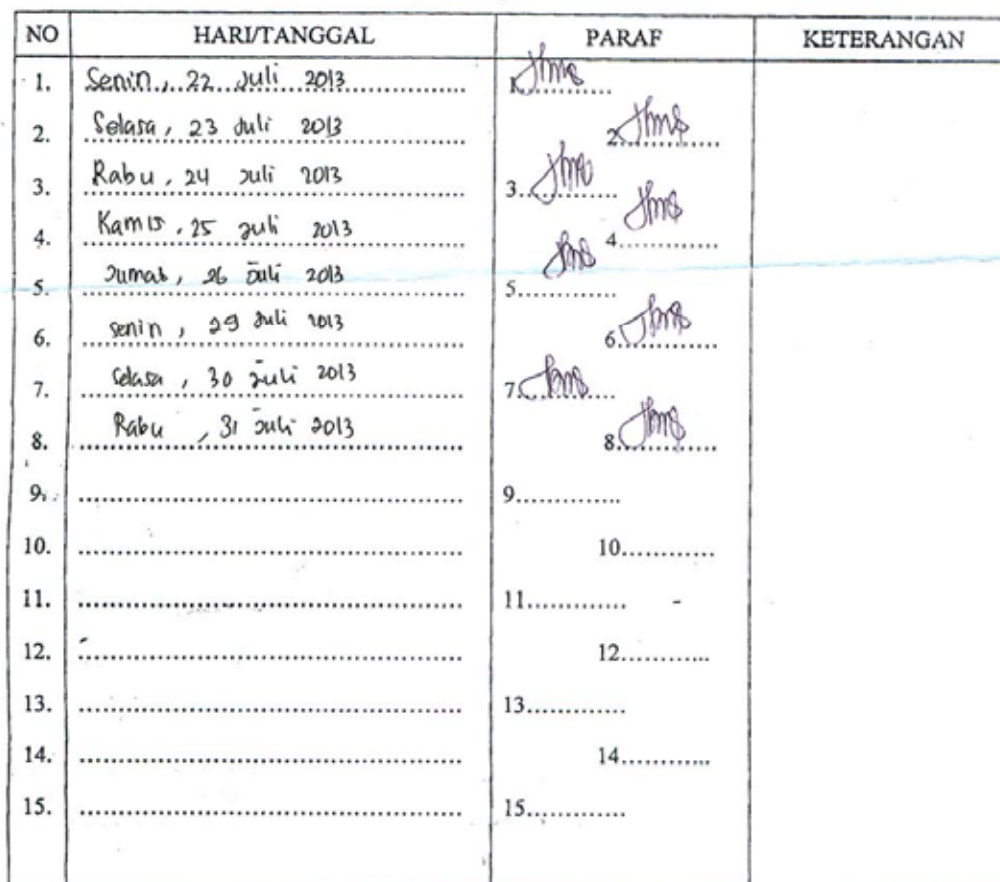 NO HARI/TANGGAL PARAF KETERANGAN
1. Senin, 22 Juli 2013 1.............
2. Selasa, 23 Juli 2013 2.............
3. Rabu, 24 Juli 2013 3.............
4. Kamis, 25 Juli 2013 4.............
5. Jumat, 26 Juli 2013 5.............
6. Senin, 29 Juli 2013 6.............
7. Selasa, 30 Juli 2013 7.............
8. Rabu, 31 Juli 2013 8.............
9. ............. 9.............
10. ............. 10............
11. ............. 11.............
12. ............. 12............
13. ............. 13.............
14. ............. 14............
15. ............. 15.............